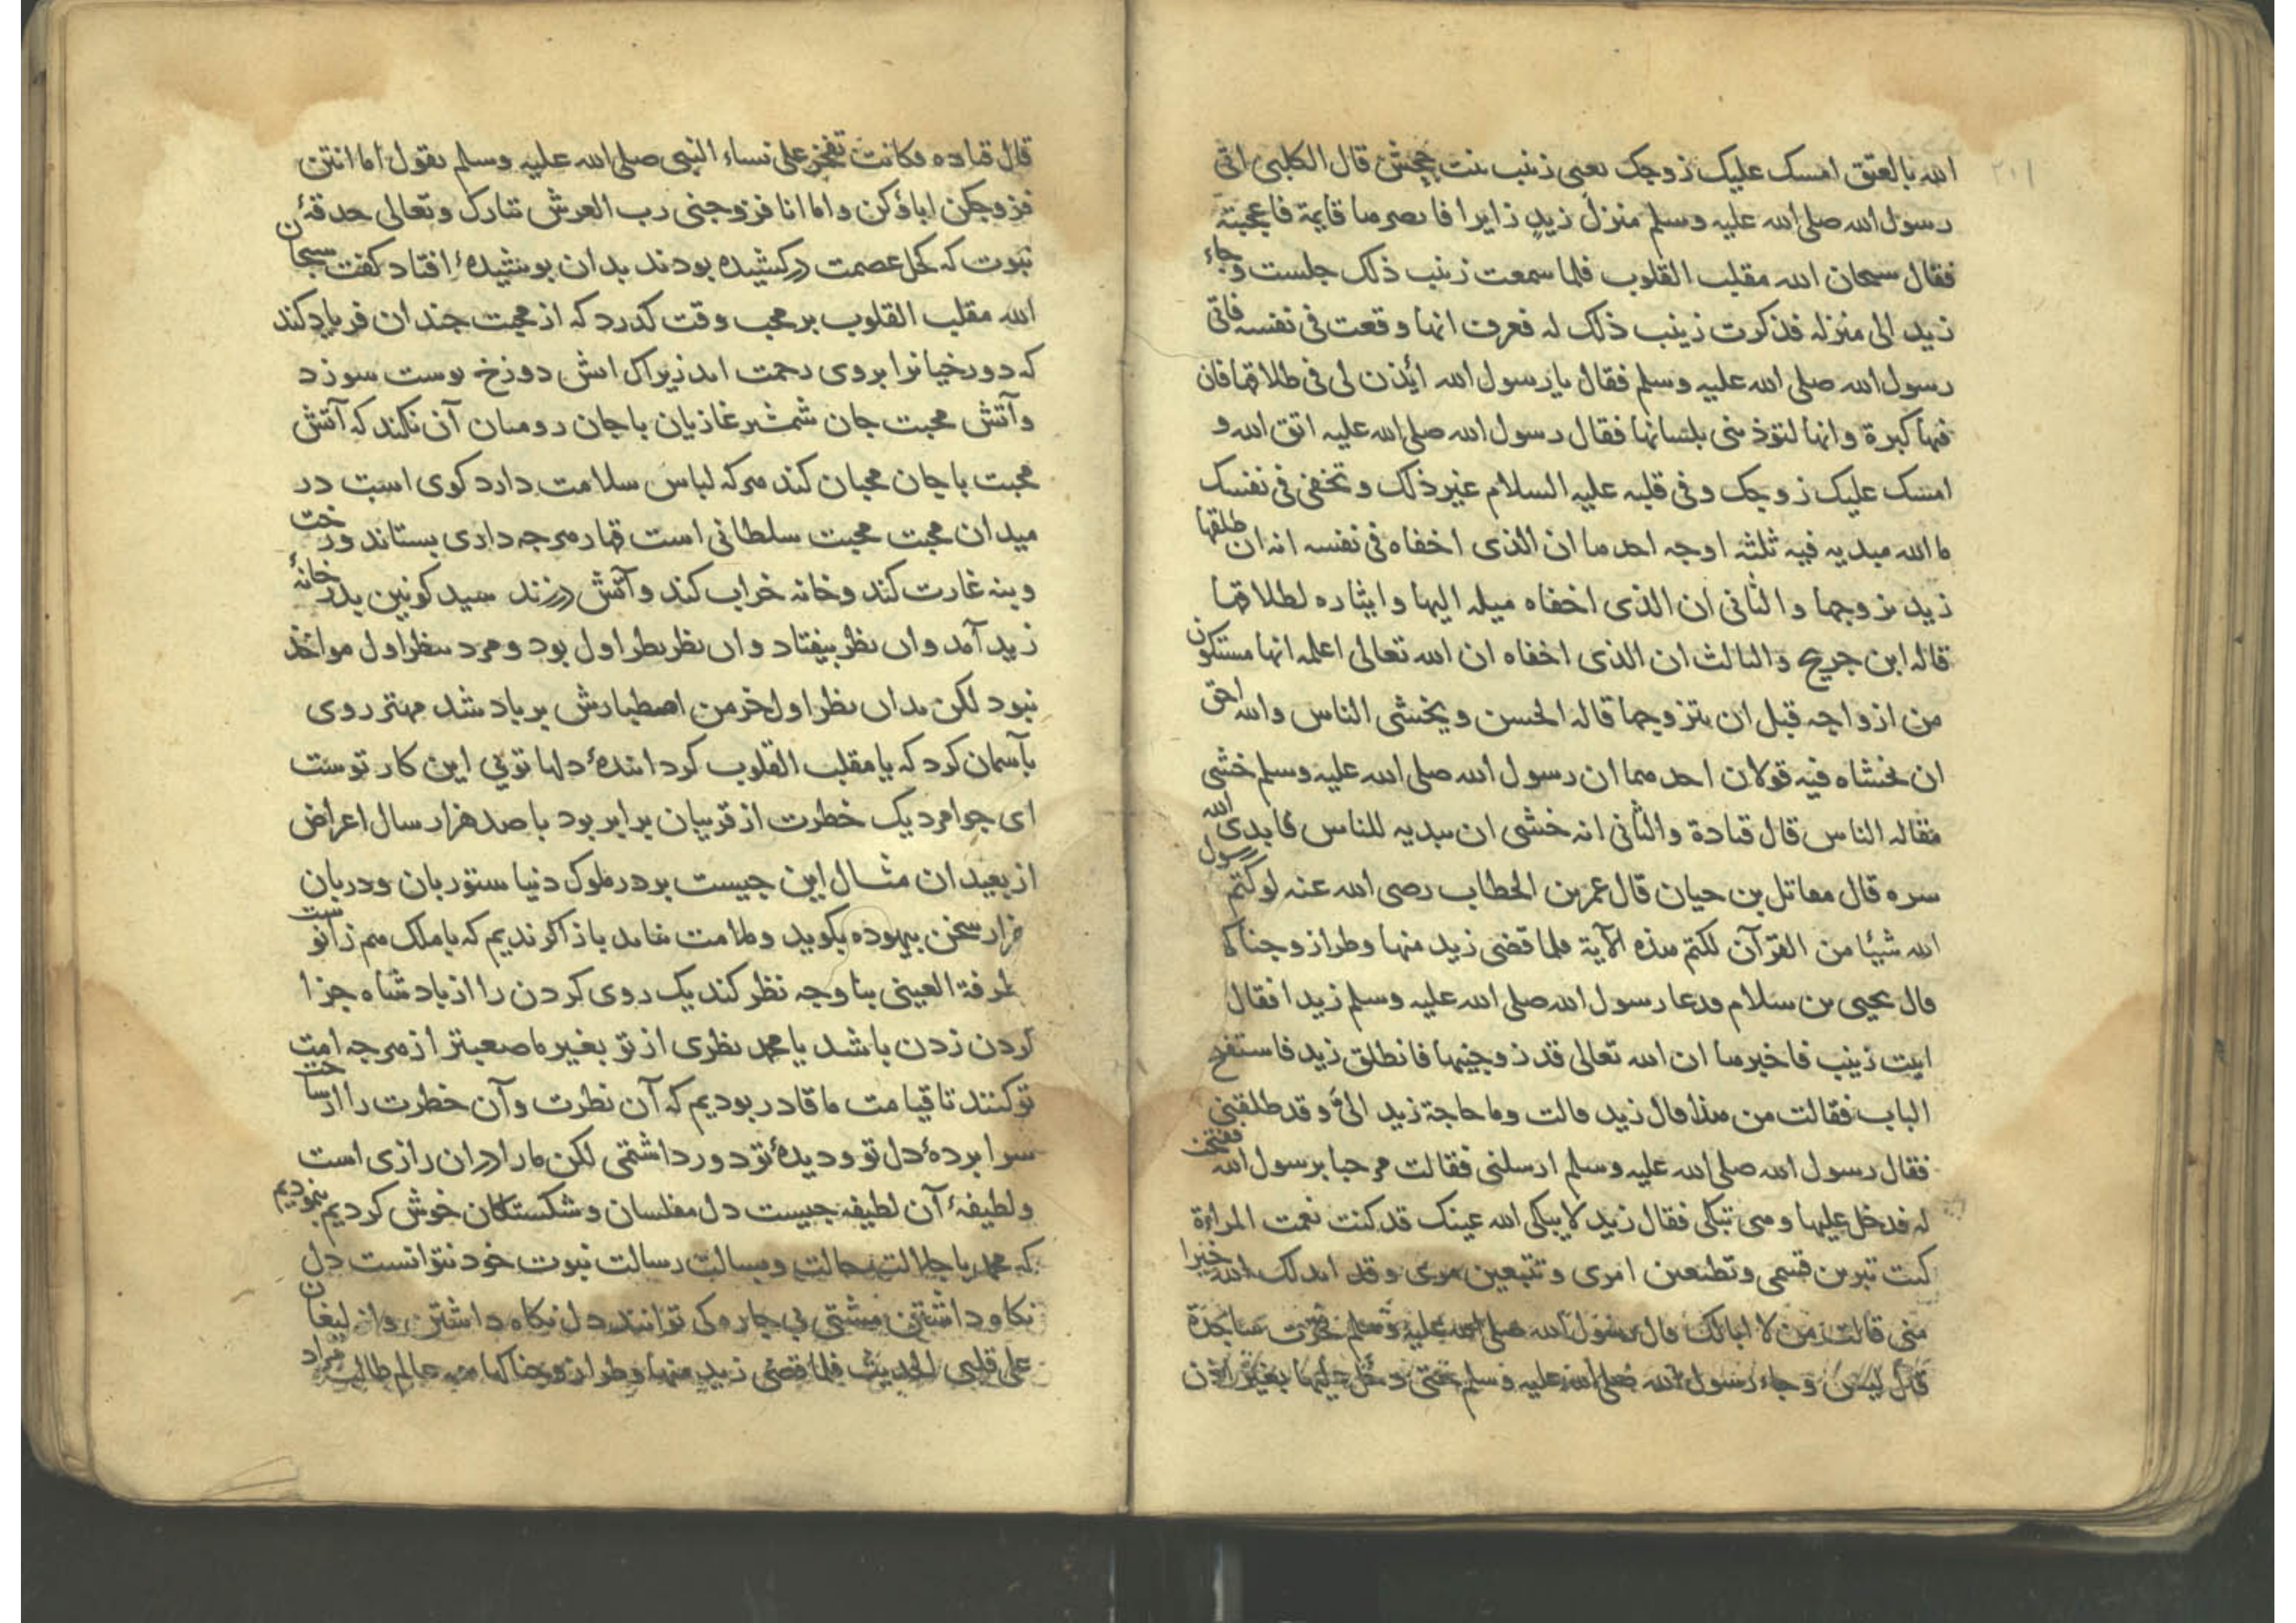 ٢٠١
الله بالعتق امسک علیک زوجک یعنی زینب بنت جحش قال الکلبی اتی
رسول الله صلی الله علیه وسلم منزل زید زایرا فابصرها قایمة فاعجبته
فقال سبحان الله مقلب القلوب فلما سمعت زینب ذلک جلست وجاء
زید الی منزله فذکرت زینب ذلک له فعرف انها وقعت فی نفسه فاتی
رسول الله صلی الله علیه وسلم فقال یا رسول الله ائذن لی فی طلاقها فان
فیها کبرة وانها لتؤذینی بلسانها فقال رسول الله صلی الله علیه اتق الله و
امسک علیک زوجک وفی قلبه علیه السلام غیر ذلک وتخفی فی نفسک
ما الله مبدیه فیه ثلثه اوجه احدها ان الذی اخفاه فی نفسه انه ان طلقها
زید تزوجها والثانی ان الذی اخفاه میله الیها وایثاره لطلاقها
قاله ابن جریج والثالث ان الذی اخفاه ان الله تعالی اعلمه انها ستکون
من ازواجه قبل ان یتزوجها قاله الحسن ویخشی الناس والله احق
ان تخشاه فیه قولان احدهما ان رسول الله صلی الله علیه وسلم خشی
مقاله الناس قال قتادة والثانی انه خشی ان یبدیه للناس فابدی الله
سره قال مقاتل بن حیان قال عمر بن الخطاب رضی الله عنه لو کتم رسول
الله شیئا من القرآن لکتم هذه الآیة فلما قضی زید منها وطرا زوجناکها
قال یحیی بن سلام فدعا رسول الله صلی الله علیه وسلم زیدا فقال
ایت زینب فاخبرها ان الله تعالی قد زوجنیها فانطلق زید فاستفتح
الباب فقالت من هذا قال زید قالت وما حاجة زید الیّ وقد طلقنی
فقال رسول الله صلی الله علیه وسلم ارسلنی فقالت مرحبا برسول الله ففتحت
له فدخل علیها وهی تبکی فقال زید لا یبکی الله عینک قد کنت نعمت المراءة
کنت تبرین قسمی وتطیعین امری وتتبعین وقد ابدلک الله خیرا
منی قالت من لا ابالک قال رسول الله صلی الله علیه وسلم فخرت ساجدة
قال وجاء رسول الله صلی الله علیه وسلم حتی دخل علیها بغیر اذن
قال قتاده فکانت تفخر علی نساء النبی صلی الله علیه وسلم تقول اما انتن
فزوجکن اباؤکن واما انا فزوجنی رب العرش تبارک وتعالی حدقهٔ
نبوت که کحل عصمت درکشیده بودند بدان پوشیدهٔ افتاد کفت سبحان
الله مقلب القلوب بر محب وقت کذرد که از محبت چندان فریاد کند
که دوزخیانرا بروی رحمت اید زیراک اتش دوزخ پوست سوزد
وآتش محبت جان شمشیر غازیان با جان رومیان آن نکند که آتش
محبت با جان محبان کند هرکه لباس سلامت دارد کوی است در
میدان محبت محبت سلطانی است قهار هرچه داری بستاند ورخت
وبنه غارت کند وخانه خراب کند وآتش درزند سید کونین بدر خانهٔ
زید آمد وان نظر بیفتاد وان نظر نظر اول بود ومرد بنظر اول مواخذ
نبود لکن بدان نظر اول خرمن اصطبارش بر باد شد مهتر روی
بآسمان کرد که یا مقلب القلوب کردانندهٔ دلها توئی این کار توست
ای جوامرد یک خطرت از قریبان برابر بود با صد هزار سال اعراض
از بعیدان مثال این چیست بر در ملوک دنیا ستوربان ودربان
هزار سخن بیهوده بکوید وملامت نیاید باز اکر ندیم که با ملک هم زانوست
طرفة العینی بناوجه نظر کند یک روی کردن را از پادشاه جزا
کردن زدن باشد یا محمد نظری از تو بغیر ما صعبتر از هرچه امت
تو کنند تا قیامت ما قادر بودیم که آن نظرت وآن خطرت را از ساحت
سرا پردهٔ دل تو ودیدهٔ تو دور داشتمی لکن مارا دران رازی است
ولطیفهٔ آن لطیفه چیست دل مفلسان وشکستکان خوش کردیم بنمودیم
که محمد با جلالت حالت وبسالت رسالت نبوت خود نتوانست دل
نکاه داشتن مشتی بی چاره کی توانند دل نکاه داشتن وانه لیغان
علی قلبی الحدیث فلما قضی زید منها وطرا زوجناکها هر طالب مراد